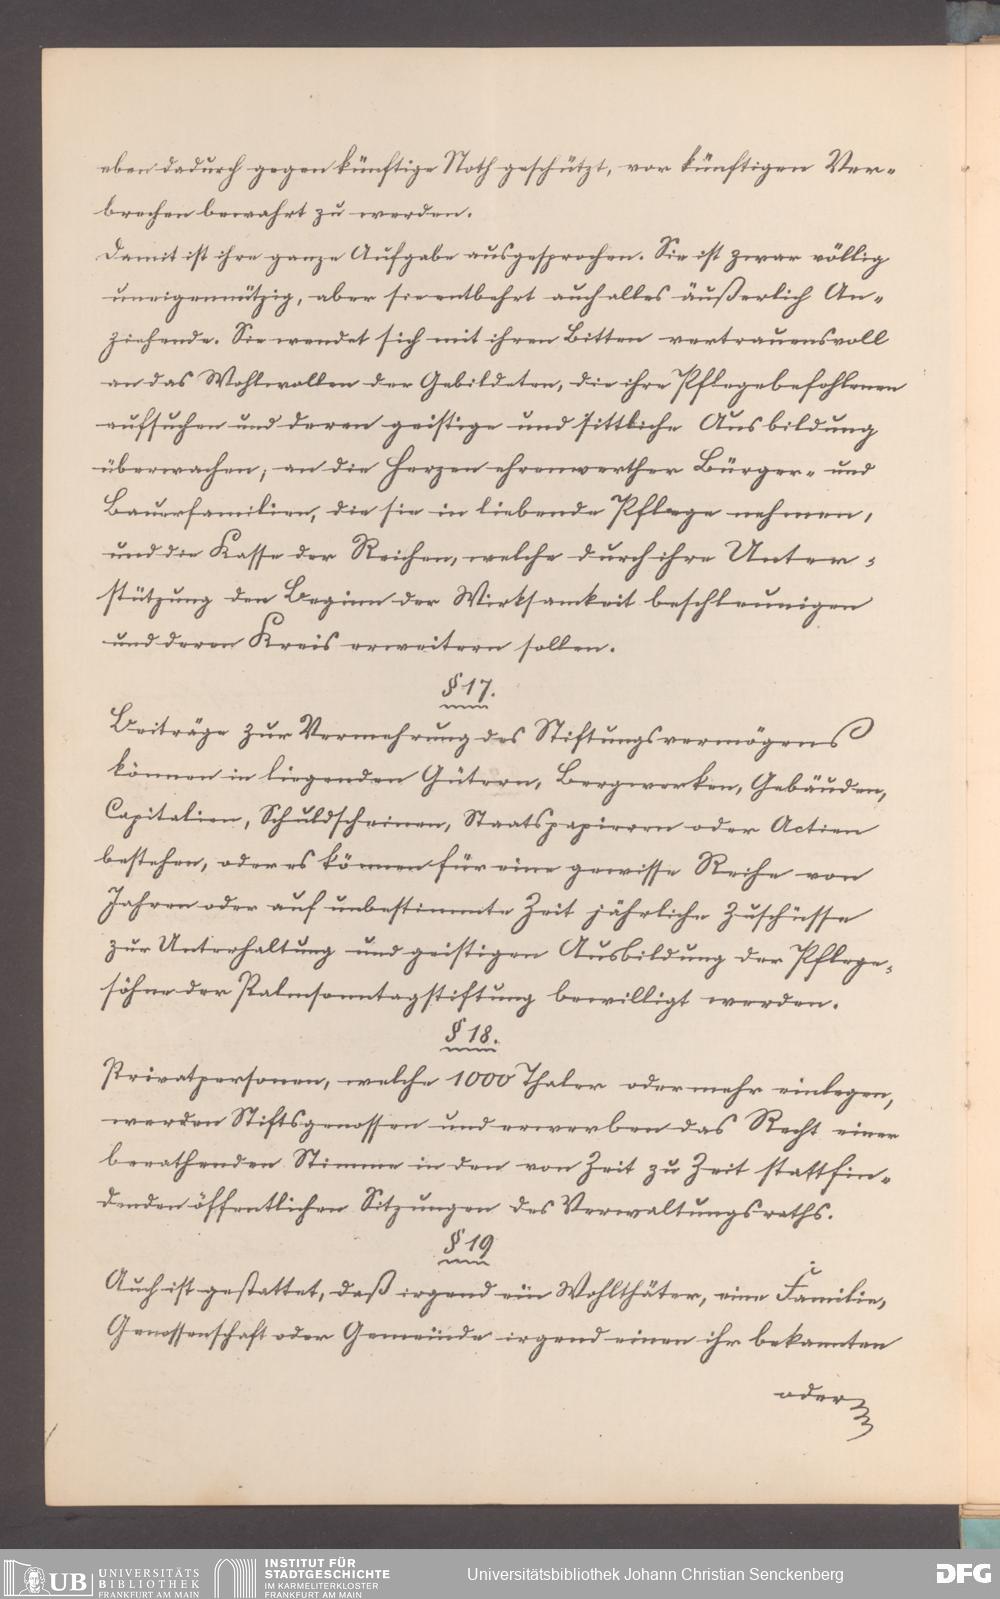 eben dadurch gegen künftige Noth geschützt, vor künftigen Ver-
brechen bewahrt zu werden.
Damit ist ihre ganze Aufgabe ausgesprochen. Sie ist zwar völlig
uneigennützig, aber sie entbehrt auch alles äußerlich An-
ziehende. Sie wendet sich mit ihren Bitten vertrauensvoll
an das Wohlwollen der Gebildeten, die ihre Pflegebefohlenen
aufsuchen und deren geistige und sittliche Ausbildung
überwachen, an die Herzen ehrenwerther Bürger- und
Bauerfamilien, die sie in liebende Pflege nehmen,
und die Kasse der Reichen, welche durch ihre Unter-
stützung den Beginn der Wirksamkeit beschleunigen
und deren Kreis erweitern sollen.
§ 17.
Beiträge zur Vermehrung des Stiftungsvermögens
können in liegenden Gütern, Bergwerken, Gebäuden,
Capitalien, Schuldscheinen, Staatspapieren oder Actien
bestehen, oder es können für eine gewisse Reihe von
Jahren oder auf unbestimmte Zeit jährliche Zuschüsse
zur Unterhaltung und geistigen Ausbildung der Pflege-
söhne der Palmsonntagstiftung bewilligt werden.
§ 18.
Privatpersonen, welche 1000 Thaler oder mehr einlegen,
werden Stiftsgenossen und erwerben das Recht einer
berathenden Stimme in den von Zeit zu Zeit stattfin-
denden öffentlichen Sitzungen des Verwaltungsraths.
§ 19
Auch ist gestattet, daß irgend ein Wohlthäter, eine Familie,
Genossenschaft oder Gemeinde irgend einen ihr bekannten
oder
UB UNIVERSITÄTS
BIBLIOTHEK
FRANKFURT AM MAIN
INSTITUT FÜR
STADTGESCHICHTE
IM KARMELITERKLOSTER
FRANKFURT AM MAIN
Universitätsbibliothek Johann Christian Senckenberg
DFG